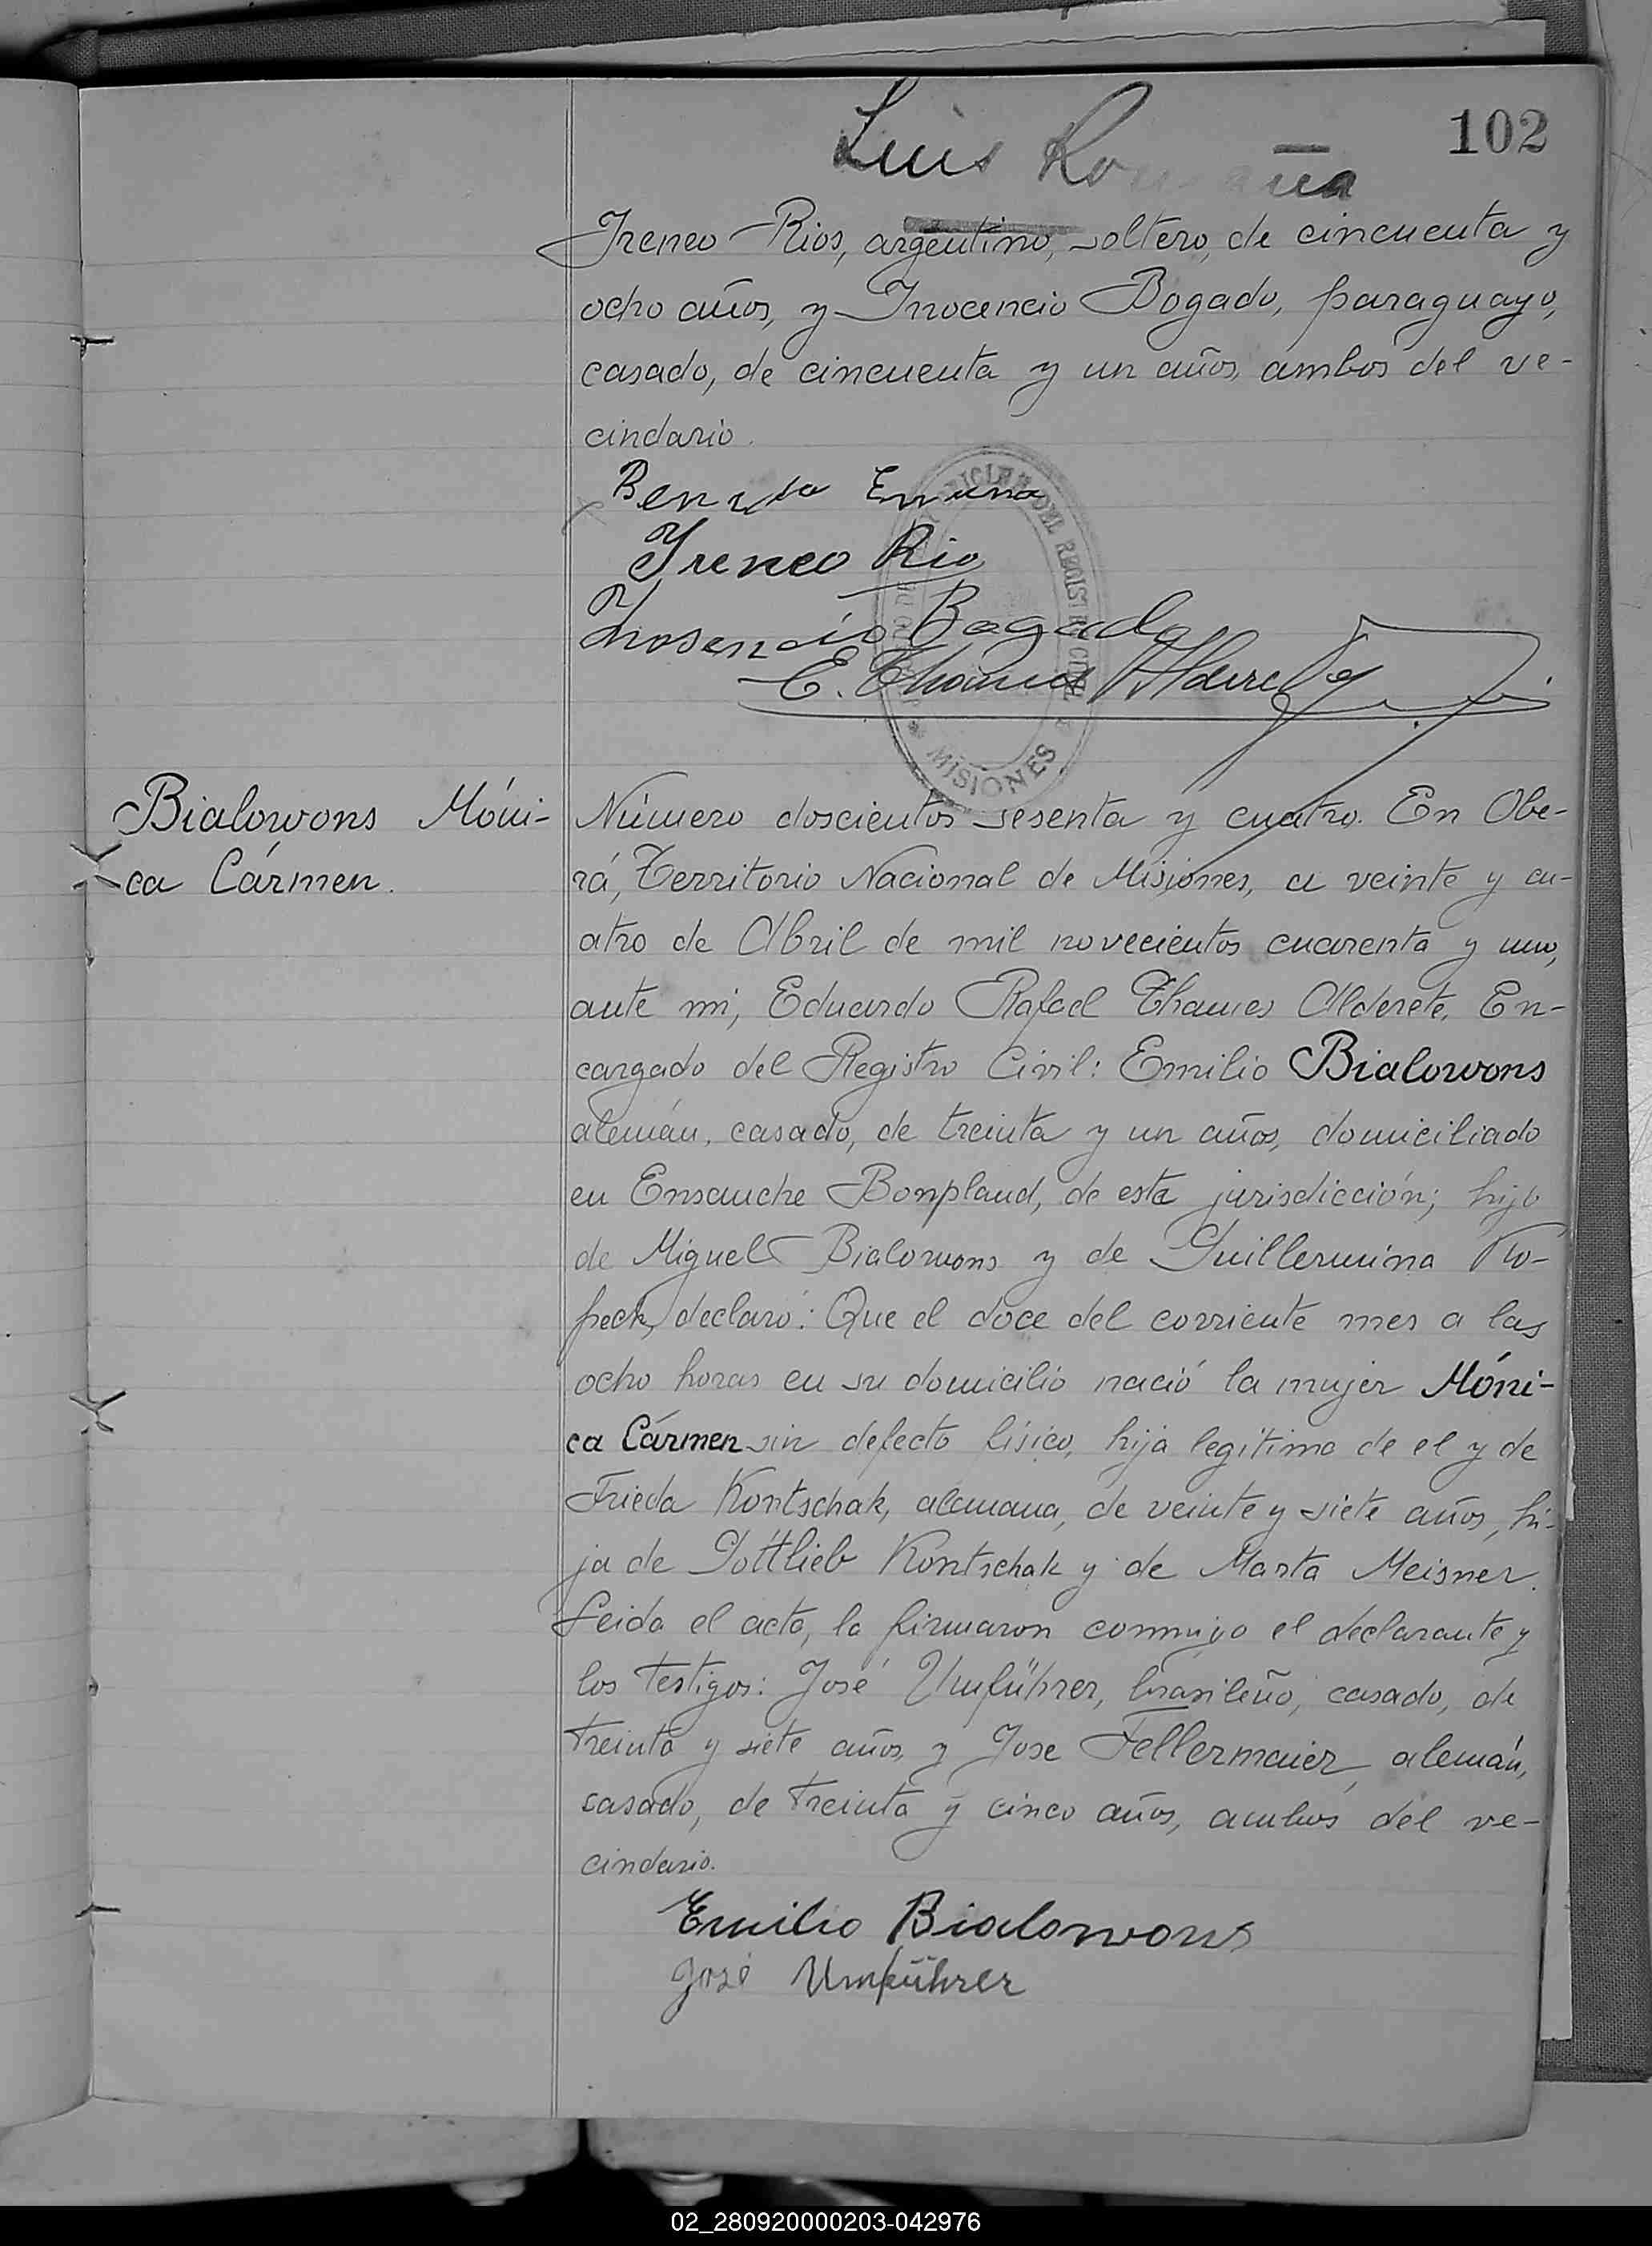 102
Luis
Ireneo Rios, argentino, soltero, de cincuenta y
ocho años, y Inocencio Bogado, paraguayo,
casado, de cincuenta y un años, ambos del ve-
cindario.
Ireneo Rio
Inosencio Bogado
E. Thames Alderete
REGISTRO CIVIL
MISIONES
Bialowons Móni-
ca Cármen.
Número doscientos sesenta y cuatro. En Obe-
rá, Territorio Nacional de Misiones, a veinte y cu-
atro de Abril de mil novecientos cuarenta y uno,
ante mi, Eduardo Rafael Thames Alderete, En-
cargado del Registro Civil: Emilio Bialowons
alemán, casado, de treinta y un años, domiciliado
en Ensanche Bonpland, de esta jurisdicción; hijo
de Miguel Bialowons y de Guillermina Ko-
peck, declaró: Que el doce del corriente mes a las
ocho horas en su domicilio nació la mujer Móni-
ca Cármen sin defecto físico, hija legitima de el y de
Frieda Kontschak, alemana, de veinte y siete años, hi-
ja de Gottlieb Kontschak y de Marta Meisner.
Leida el acta, la firmaron conmigo el declarante y
los testigos: José Umführer, brasileño, casado, de
treinta y siete años, y Jose Fellermaier, alemán,
casado, de treinta y cinco años, ambos del ve-
cindario.
Emilio Bialowons
José Umführer
02_280920000203-042976